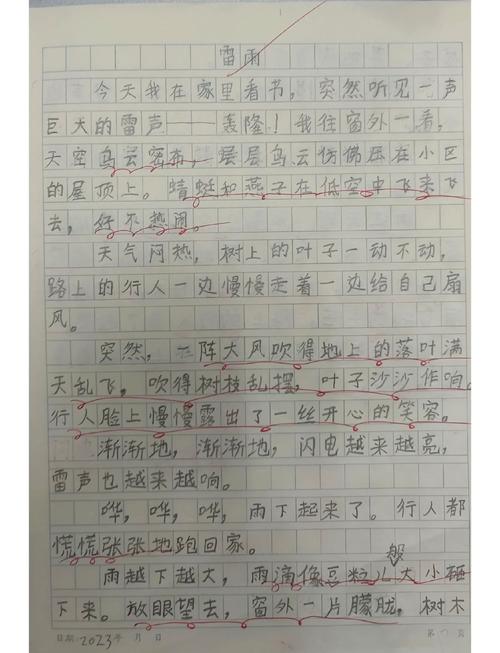 雷雨
今天我在家里看节，突然听见一声
巨大的雷声——轰隆！我往窗外一看，
天空乌云密布，层层乌云仿佛压在小区
的屋顶上。蜻蜓和燕子在低空中飞来飞
去，好不热闹。
天气闷热，树上的叶子一动不动，
路上的行人一边慢慢走着一边给自己扇
风。
突然，一阵大风吹得地上的落叶满
天乱飞，吹得树枝乱摆，叶子沙沙作响。
行人脸上慢慢露出了一丝开心的笑容。
渐渐地，渐渐地，闪电越来越亮，
雷声也越来越响。
哗，哗，哗，雨下起来了。行人都
慌慌张张地跑回家。
般
雨越下越大，雨滴像豆粒儿大小砸
下来。放眼望去，窗外一片朦胧，树木
日期：2023年 月 日 第 页